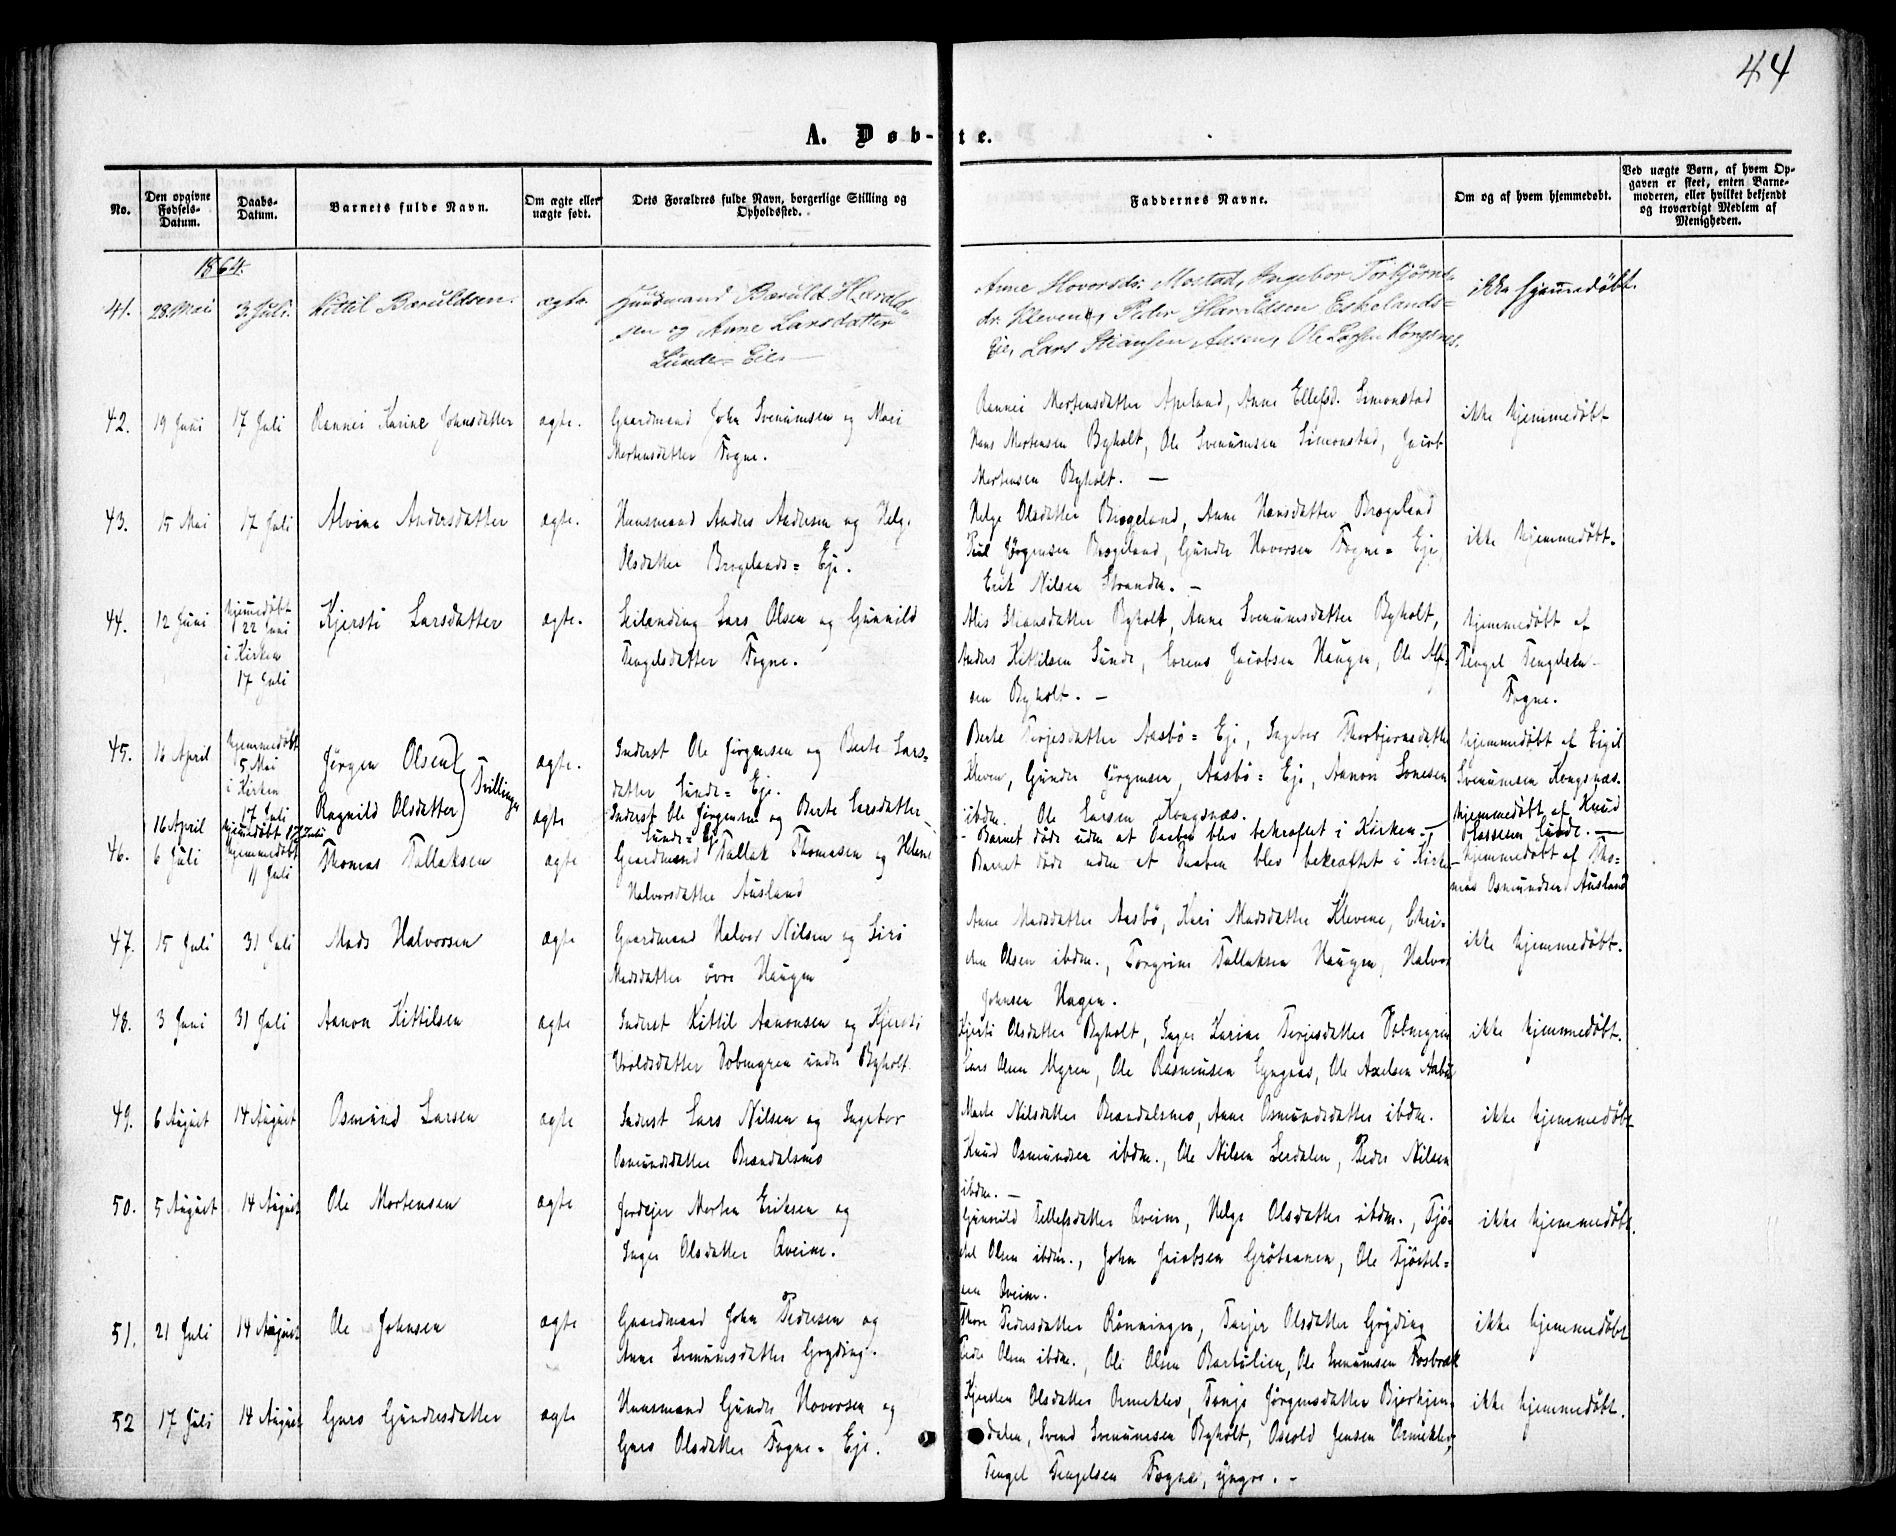 44
A. Døb-te.
No.
Den opgivne Fødsels-Datum.
Daabs-Datum.
Barnets fulde Navn.
Om ægte eller uægte født.
Dets Forældres fulde Navn, borgerlige Stilling og Opholdssted.
Faddernes Navne.
Om og af hvem hjemmedøbt.
Ved uægte Børn, af hvem Opgaven er skeet, enten Barnemoderen, eller hvilket bekjendt og troværdigt Medlem af Menigheden.
1864.
41. 28 Mai 3 Juli. Kittil Baruldsen. ægte.
Gaardmand Baruld Harald-
sen og Anne Larsdatter
Lunde-Eie
Anne Hovorsdr. Mostad, Ingebor Torbjørns-
dr. Kleven, Peder Haraldsen Eskelands=
Eie, Lars Stiansen Aasen, Ole Larsen Kongsnes.
ikke hjemmedøbt.
42. 19 Juni 17 Juli Rannei Karine Johnsdatter ægte.
Gaardmand John Svenumsen og Mari
Mortensdatter Fogne.
Rannei Mortensdatter Apeland, Anne Ellefsd. Simonstad
Hans Mortensen Byholt, Ole Svenumsen Simonstad, Jacob
Mortensen Byholt. —
ikke hjemmedøbt
43. 15 Mai 17 Juli Alvine Andersdatter ægte.
Huusmand Anders Andersen og Helge
Olsdatter Brægelands= Eje.
Helge Olsdatter Brægeland, Anne Hansdatter Brægeland
Paul Jørgensen Brægeland, Gunder Hoversen Fogne= Eje,
Erik Nilsen Stranden. —
ikke hjemmedøbt.
44. 12 Juni
hjemmedøbt
22 Juni
i Kirken
17 Juli
Kjersti Larsdatter ægte.
Lars Olsen og Gunnild
Tengelsdatter Fogne.
Alis Stiansdatter Byholt, Anne Svenumsdatter Byholt,
Anders Kittilsen Lunde, Lorens Jacobsen Haugen, Ole Alf-
sen Byholt. —
hjemmedøbt af
Tengel Tengelsen
Fogne.
45. 16 April
hjemmedøbt
5 Mai
i Kirken
17 Juli
Jørgen Olsen
Tvillinger
ægte.
Inderst Ole Jørgensen og Berte Lars=
datter Lunde= Eje.
Berte Terjesdatter Aasbø= Eje, Ingebor Thorbjørnsdatter
Kleven, Gunder Jørgensen, Aasbø= Eje, Aanon Lonesen
ibdm. Ole Larsen Kongsnæs.
hjemmedøbt af Eigil
Svenumsen Kongsnæs.
16 April
hjemmedøbt 17 Juli
Ragnild Olsdatter ægte
Inderst Ole Jørgensen og Berte Larsdatter
Lunde= Eje
Barnet døde uden at Daaben blev bekræftet i Kirken. —
hjemmedøbt af Knud
Lassesen Lunde. —
46. 6 Juli
hjemmedøbt
11 Juli
Thomas Tallaksen ægte
Gaardmand Tallak Thomasen og Helene
Halvorsdatter Ausland
Barnet døde uden at Daaben blev bekræftet i Kirken
hjemmedøbt af Tho=
mas Osmundsen Ausland
47. 15 Juli 31 Juli Mads Halvorsen ægte
Gaardmand Halvor Nilsen og Siri
Madsdatter øvre Haugen
Anne Madsdatter Aasbø, Kari Madsdatter Klevene, Chri-
sten Olsen ibdm., Torgrim Tallaksen Haugen, Halvor
Johnsen Hagen.
ikke hjemmedøbt.
48. 3 Juni 31 Juli Aanon Kittilsen ægte
Inderst Kittil Aanonsen og Kjersti
Uvoldsdatter Dobmyren under Byholt
Kjersti Olsdatter Byholt, Inger Karine Terjesdatter Dobmyren
Lars Olsen Myren, Ole Rasmusen Lyngnæs, Ole Axelsen Aasbø
ikke hjemmedøbt.
49. 6 August 14 August Osmund Larsen ægte
Inderst Lars Nilsen og Ingebor
Osmundsdatter Brændalsmo
Marte Nilsdatter Brændalsmo, Anne Osmundsdatter ibdm.
Knud Osmundsen ibdm., Ole Nilsen Lerdalen, Peder Nilsen
ibdm. —
ikke hjemmedøbt
50. 5 August 14 August Ole Mortensen ægte
Jordejer Morten Eriksen og
Inger Olsdatter Qveim.
Gunnild Tellefsdatter Qveim, Helge Olsdatter ibdm., Tjø-
stel Olsen ibdm., John Jacobsen Grøtaanen, Ole Tjøstel=
sen Qveim.
ikke hjemmedøbt.
51. 21 Juli 14 August Ole Johnsen ægte
Gaardmand John Pedersen og
Anne Svenumsdatter Gryding.
Thore Pedersdatter Rønningen, Tarjer Olsdatter Gryding
Peder Olsen ibdm., Ole Olsen Bartølien, Ole Svenumsen Fosbræk
ikke hjemmedøbt
52 17 Juli 14 August Guro Gundersdatter ægte
Huusmand Gunder Hoversen og
Guro Olsdatter Fogne= Eje.
Kjersten Olsdatter Ormeklev, Tonje Jørgensdatter Bjerkjen-
dalen, Svend Svenumsen Byholt, Osvold Jensen Ormeklev,
Tengel Tengelsen Fogne, yngre. —
ikke hjemmedøbt.